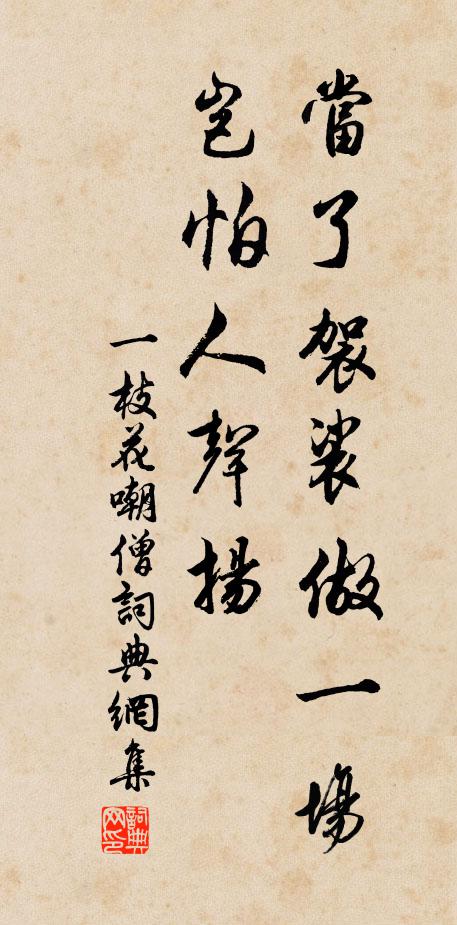 當了袈裟做一場
豈怕人聲揚
一枝花嘲僧詞典網集
詞典网印